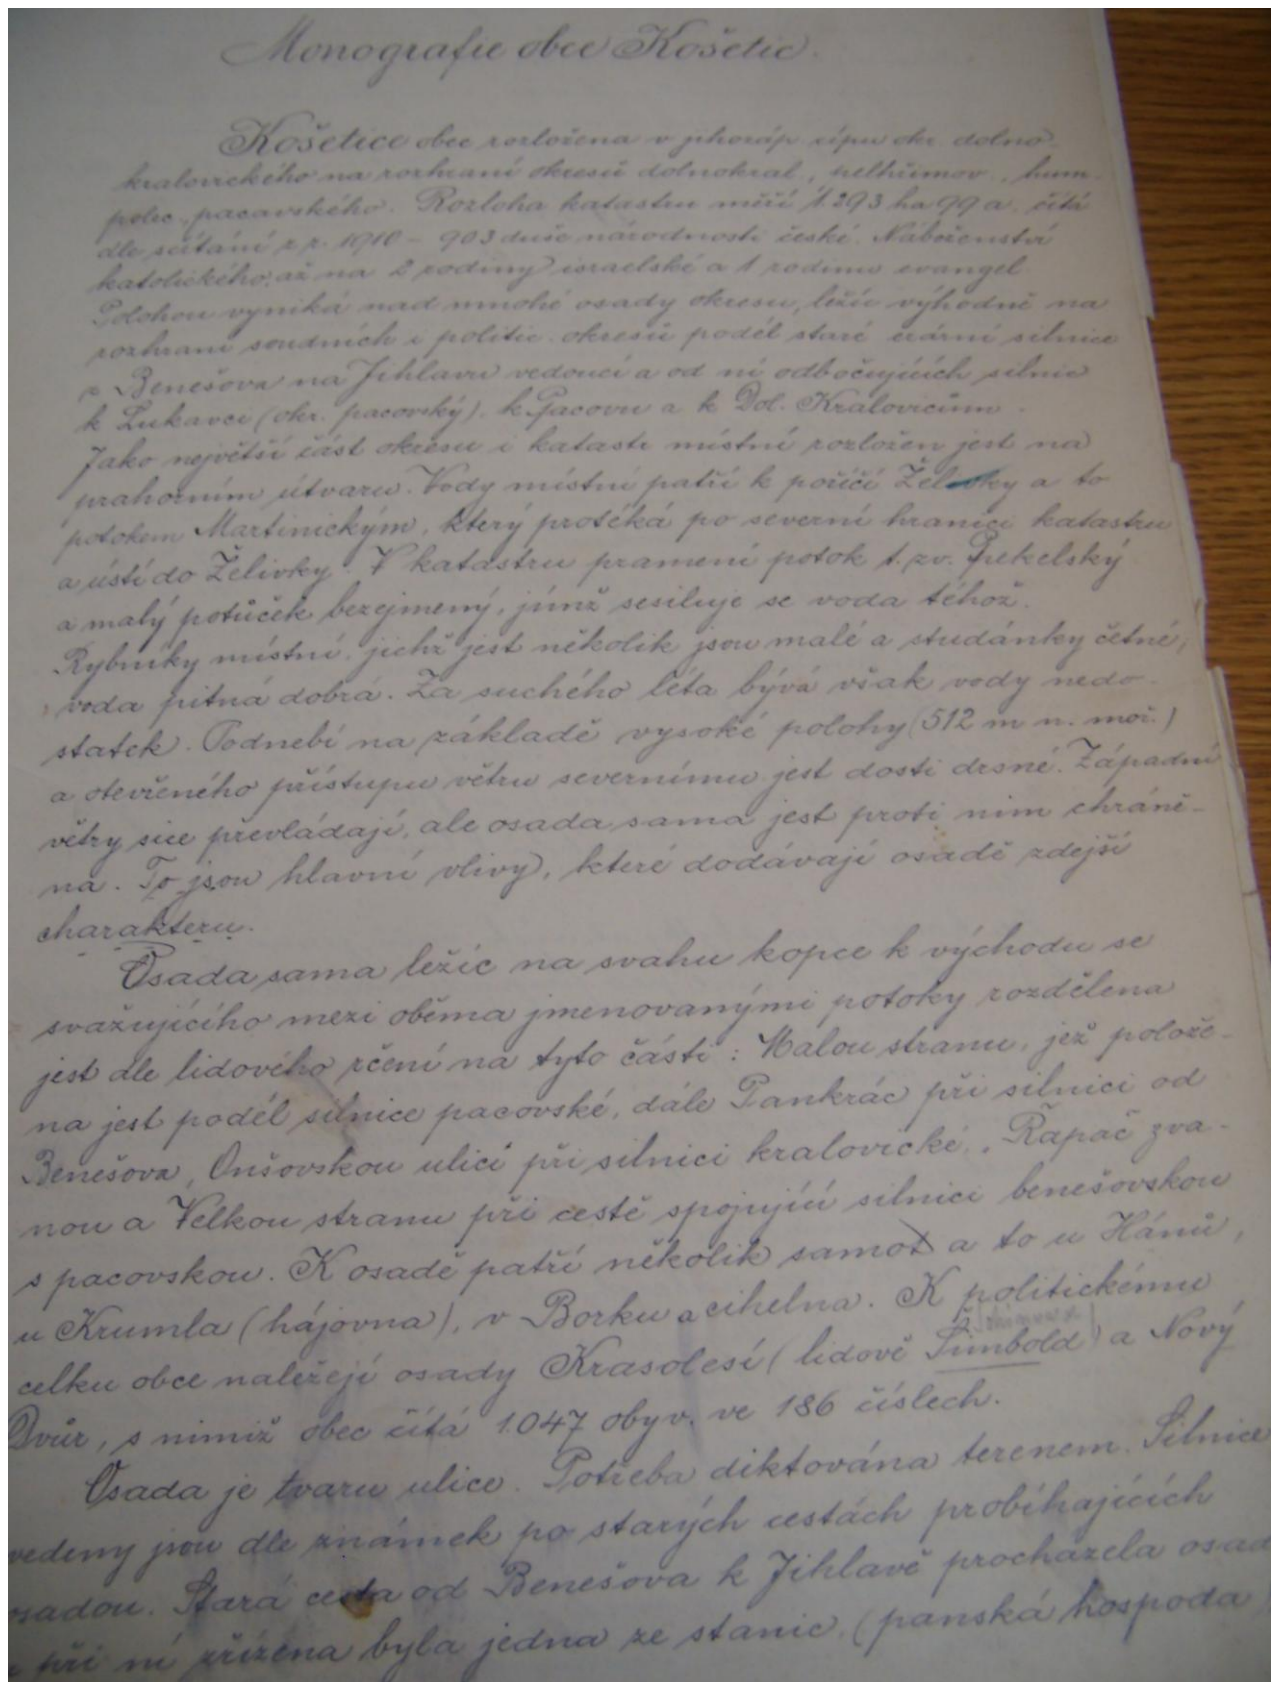 Monografie obce Košetic.
Košetice obec rozložena v jihozáp. cípu okr. dolno-
kralovického na rozhraní okresů dolnokral., pelhřimov., hum-
polec. pacovského. Rozloha katastru měří 1.293 ha 99 a. čítá
dle sčítání z r. 1910 – 903 duše národnosti české. Náboženství
katolického, až na 2 rodiny israelské a 1 rodinu evangel.
Polohou vyniká nad mnohé osady okresu, ležíc výhodně na
rozhraní soudních i politic. okresů podél staré erární silnice
z Benešova na Jihlavu vedoucí a od ní odbočujících silnic
k Lukavci (okr. pacovský), k Pacovu a k Dol. Kralovicům.
Jako největší část okresu i katastr místní rozložen jest na
prahorním útvaru. Vody místní patří k poříčí Želivky a to
potokem Martinickým, který protéká po severní hranici katastru
a ústí do Želivky. V katastru pramení potok t. zv. Pekelský
a malý potůček bezejmený, jímž sesiluje se voda téhož.
Rybníky místní, jichž jest několik jsou malé a studánky četné,
voda pitná dobrá. Za suchého léta bývá však vody nedo-
statek. Podnebí na základě vysoké polohy (512 m n. moř.)
a otevřeného přístupu větru severnímu jest dosti drsné. Západní
větry sice převládají, ale osada sama jest proti nim chráně-
na. To jsou hlavní vlivy, které dodávají osadě zdejší
charakteru.
Osada sama ležíc na svahu kopce k východu se
svažujícího mezi oběma jmenovanými potoky rozdělena
jest dle lidového rčení na tyto části: Malou stranu, jež polože-
na jest podél silnice pacovské, dále Pankrác při silnici od
Benešova, Onšovskou ulicí při silnici kralovické, Řapač zva-
nou a Velkou stranu při cestě spojující silnici benešovskou
s pacovskou. K osadě patří několik samot a to u Hánů,
u Krumla (hájovna), v Borku a cihelna. K politickému
celku obce náležejí osady Krasolesí (lidově Šimbold) a Nový
Dvůr, s nimiž obec čítá 1.047 obyv. ve 186 číslech.
Osada je tvaru ulice. Potřeba diktována terenem. Silnice
vedeny jsou dle známek po starých cestách probíhajících
osadou. Stará cesta od Benešova k Jihlavě procházela osad
při ní zřízena byla jedna ze stanic, (panská hospoda)